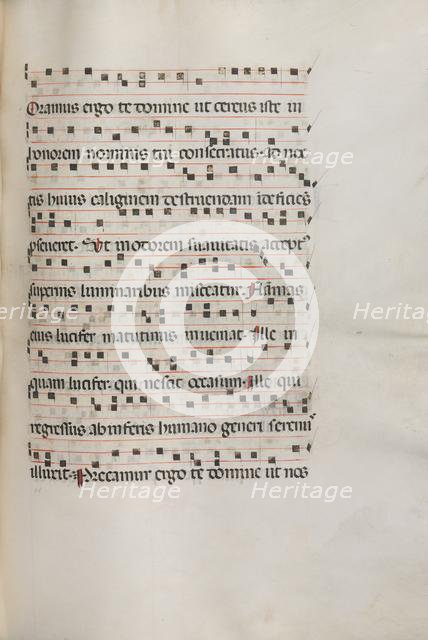 Oramus ergo te domine ut cereus iste in
honorem nominis tui consecratus. ad noc
tis huius caliginem destruendam ideficiēs
pseveret. Et in odorem suavitatis accept᾽
supernis luminaribus misceatur. Flāmas
eius lucifer matutinus inveniat. Ille in
quam lucifer. qui nescit occasum. Ille qui
regressus ab inferis humano generi seren᾽
illuxit. Precamur ergo te domine ut nos
Heritage Heritage Heritage
Heritage Heritage Heritage
Heritage Heritage